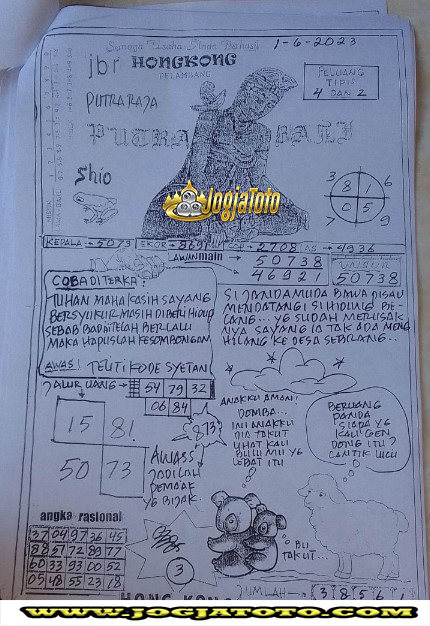 Semoga Usaha Anda Berhasil
1-6-2023
jbr HONGKONG
PALEMBANG
PUTRA RAJA
PUTRA BALI
PELUANG
TIPIS
4 DAN 2
Shio
3 6
8 1
0 5
7 9
JogjaToto
KEPALA = 5073 EKOR = 8691 COP = 2798 AS = 4936
LAWAN main
50738
4692
50738
COBA DITERKA:
TUHAN MAHA KASIH SAYANG
BERSYUKUR MASIH DIBERI HIDUP
SEBAB BADAI TELAH BERLALU
MAKA HAPUSLAH KESOMBONGAN
AWAS! TELITI KODE SYETAN
SI JANDA MUDA BAWA PISAU
MENDATANGI SI HIDUNG BE-
LANG... YG SUDAH MERUSAK
NYA SAYANG IA TAK ADA MENG
HILANG KE DESA SEBRANG..
JALUR UANG
54 79 32
06 84
15 81
50 73
873
AWASS
JADILAH
PEMBAK
YG BIJAK.
ANAKKU AMAN!
DOMBA...
INI ANAKKU
DIA TAKUT
LIHAT KALI
BULU MU YG
LEBAT ITU
BERUANG
PANDA
SIAPA YG
KAU GEN
DONG ITU?
CANTIK LUCU
angka rasional
37 04 97 36 45
88 57 72 89 77
60 33 93 00 52
05 48 55 23 18
3
IBU
TAKUT...
HONG KON
JUMLAH
3 8 5 6 1
WWW.JOGJATOTO.COM